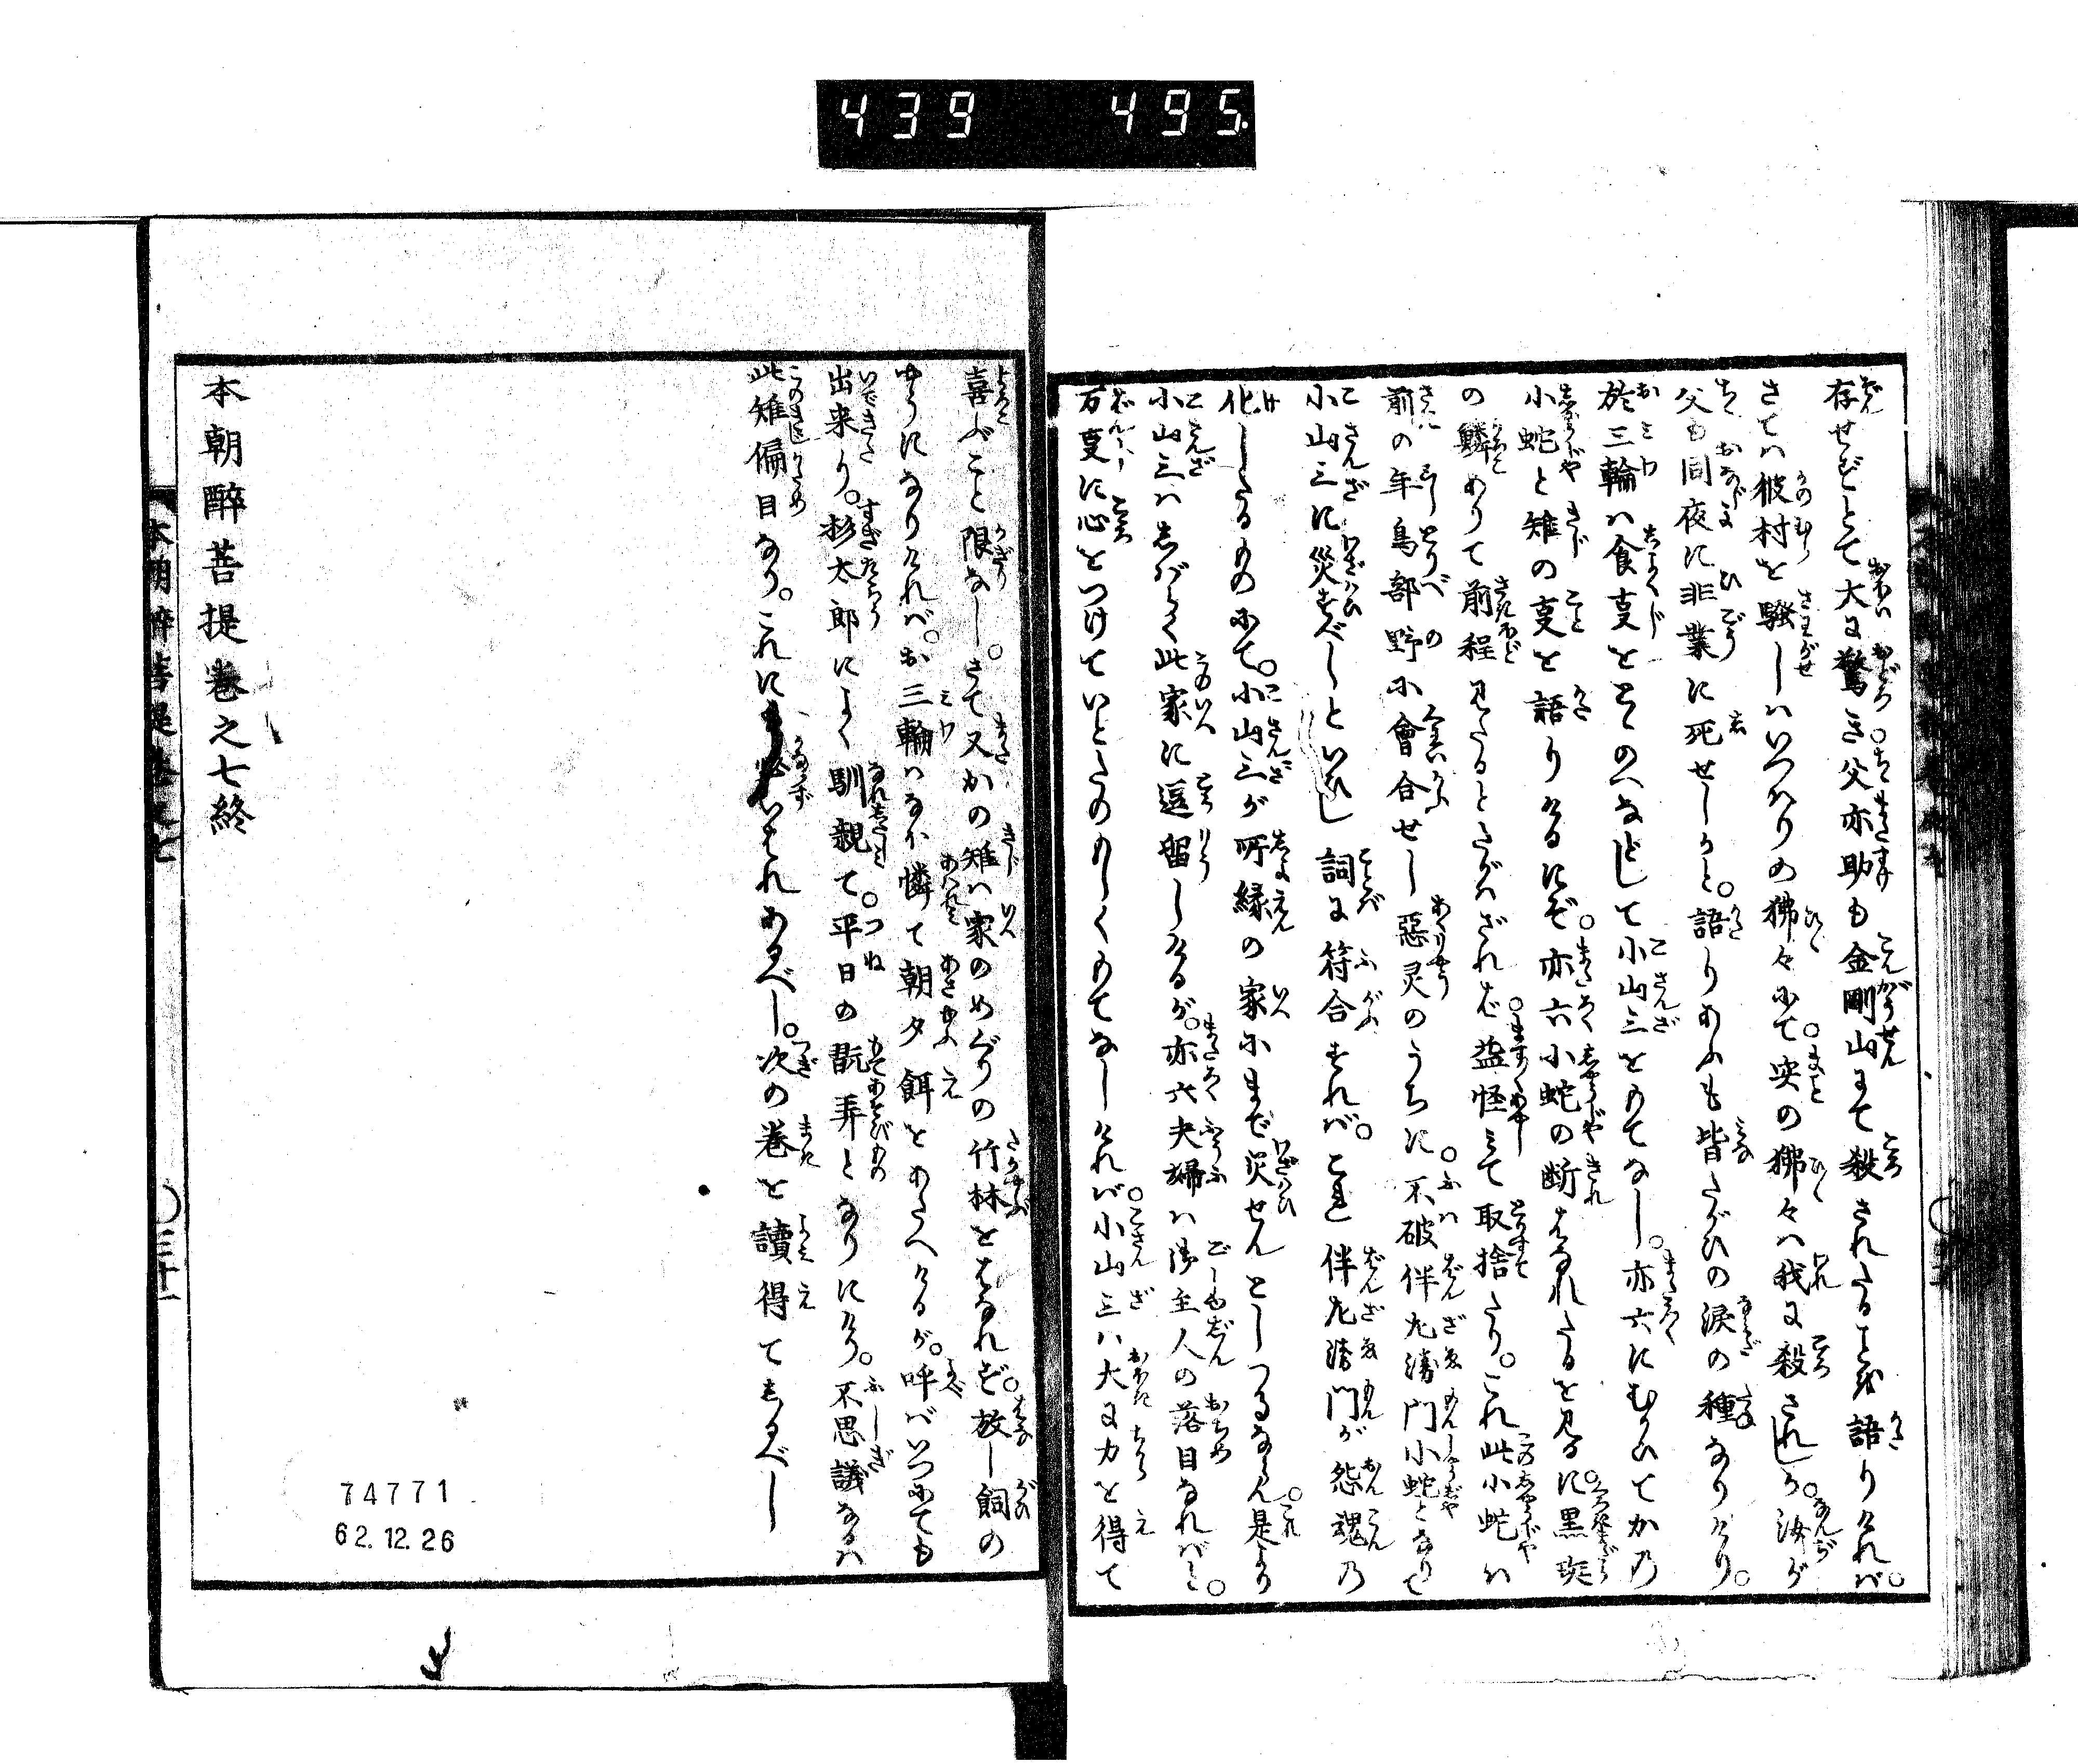 439 495.
存せずとて大に驚き父亦助も金剛山にて殺されたるよしを語りければ。
さては彼村を騒しはいつはりの狒々にて。実の狒々は我に殺されしか。汝が
父も同夜に非業に死せしかと。語りあふも皆たがひの涙の種なりけり。
於三輪は食事をとゝのへなどして小山三をもてなし。亦六にむかひてかの
小蛇と雉の事を語りけるにぞ。亦六小蛇の断はなれたるを見るに。黒斑
の鱗ありて前程見たるとたがはざれば。益怪みて取捨たり。これ此小蛇は
前の年鳥部野に會合せし惡灵のうちに。不破伴左衛門小蛇となりて
小山三に災すべしといひし詞に符合すれば。これ伴左衛門が怨魂の
化したるものにて。小山三が所縁の家にまで災せんとしつるならん。是より
小山三はしばらく此家に逗留しけるが。亦六夫婦は御主人の落目なればと。
万事に心をつけていとたのもしくもてなしければ。小山三は大に力を得て
喜ぶこと限なし。さて又かの雉は家のめぐりの竹林をはなれず。放し飼の
やうになりければ。お三輪はなほ憐て朝夕餌をあたへけるが。呼ばいつにても
出来り。杉太郎によく馴親て。平日の翫弄となりにけり。不思議なるは
此雉偏目なり。これにも必いはれあるべし。次の巻を讀得てしるべし
本朝醉菩提巻之七終
本朝醉菩提巻之七
〇三十一
74771
62.12.26